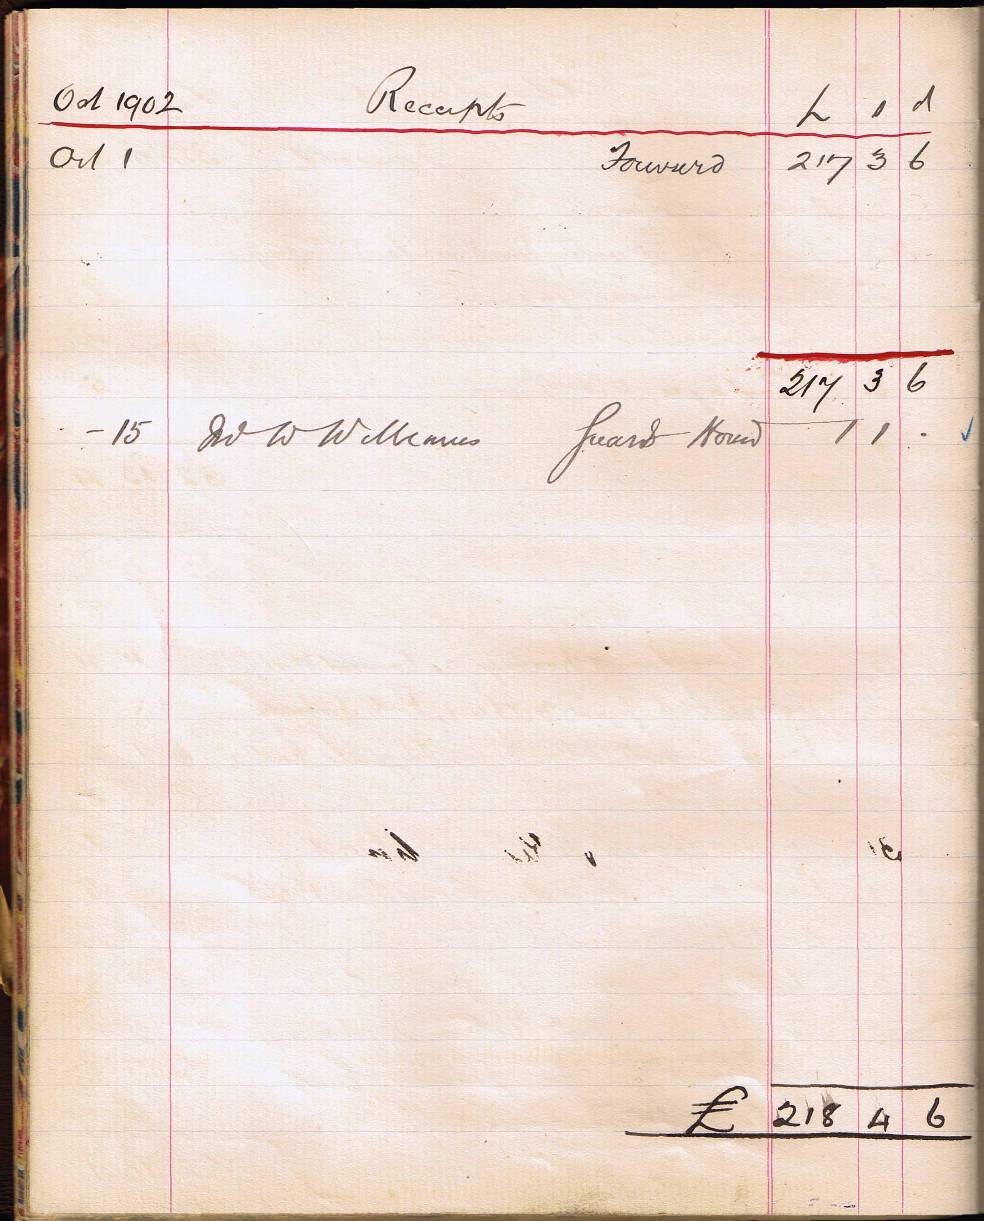 Oct 1902 Receipts £ s d
Oct 1 Forward 217 3 6
217 3 6
- 15 W Williams Guard 1 1 -
£ 218 4 6